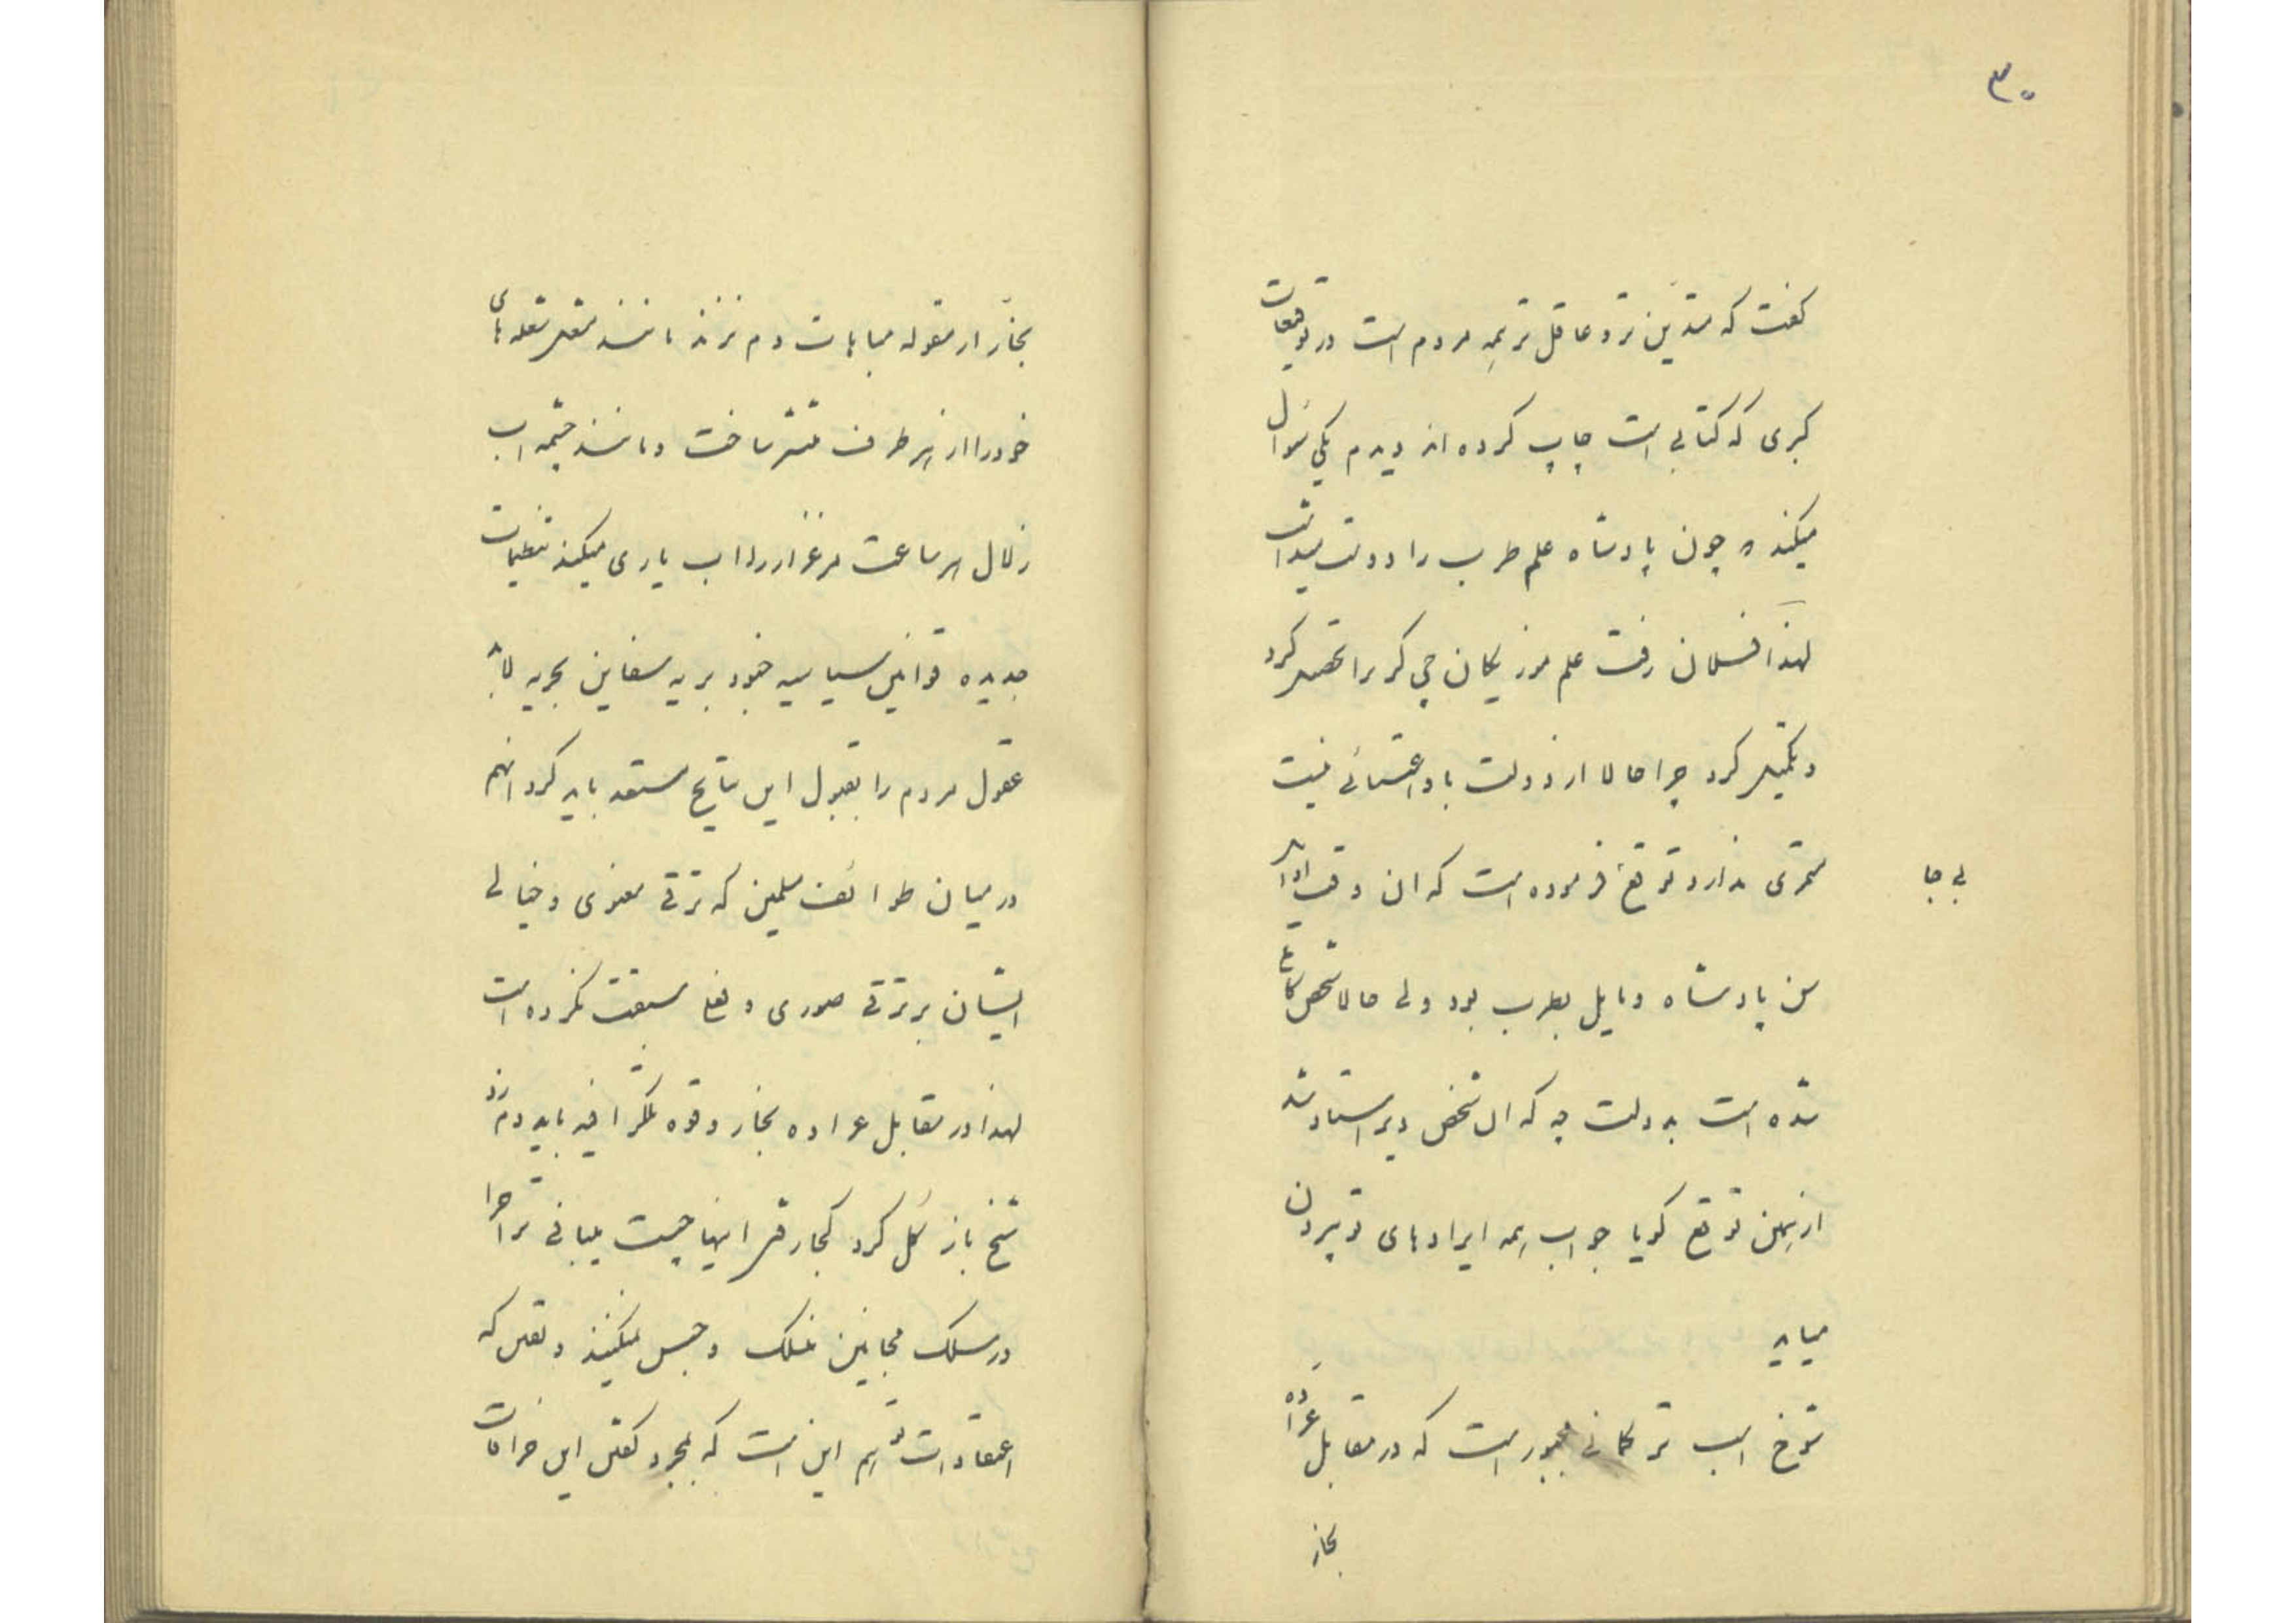 ۳۰
گفت که متدّین تر و عاقل تر همه مردم است در توقیعات
کبری که کتابی است چاپ کرده اند دیدم یکی سؤال
میکند چون پادشاه علم طرب را دوست میداشت
لهذا فلان رفت علم موزیکان چی گری را تحصیل کرد
و تکمیل کرد چرا حالا از دولت باو اعتنائی نیست
ثمری ندارد توقیع فرموده است که ان وقت
بی جا
سن پادشاه و مایل بطرب بود ولی حالا شخص
شده است بدولت چه که ان شخص دیر استاد شد
از همین توقیع گویا جواب همه ایرادهای تو بیرون
میاید
شوخ اسب ترکمانی مجبور است که در مقابل عرّاده
بخار
بخار از مقوله مباهات دم نزند مانند شعله های
خود را از هر طرف منتشر ساخت و مانند چشمه اب
زلال هر ساعت مرغزار را اب یاری میکند تنظیمات
جدیده قوانین سیاسیه جنود بریه سفاین بحریه
عقول مردم را بقبول این نتایج مستعد باید کرد انهم
در میان طوائف مسلمین که ترقی معنوی و خیالی
ایشان بر ترقی صوری و فعلی سبقت نکرده است
لهذا در مقابل عراده بخار و قوه تلگرافیه باید دم نزد
شیخ باز گل کرد اینها چیست میبافی ترا چرا
در سلک مجانین منسلک و حبس نمیکنند و یقین که
اعتقادات تو هم این است که بمجرد گفتن این خرافات